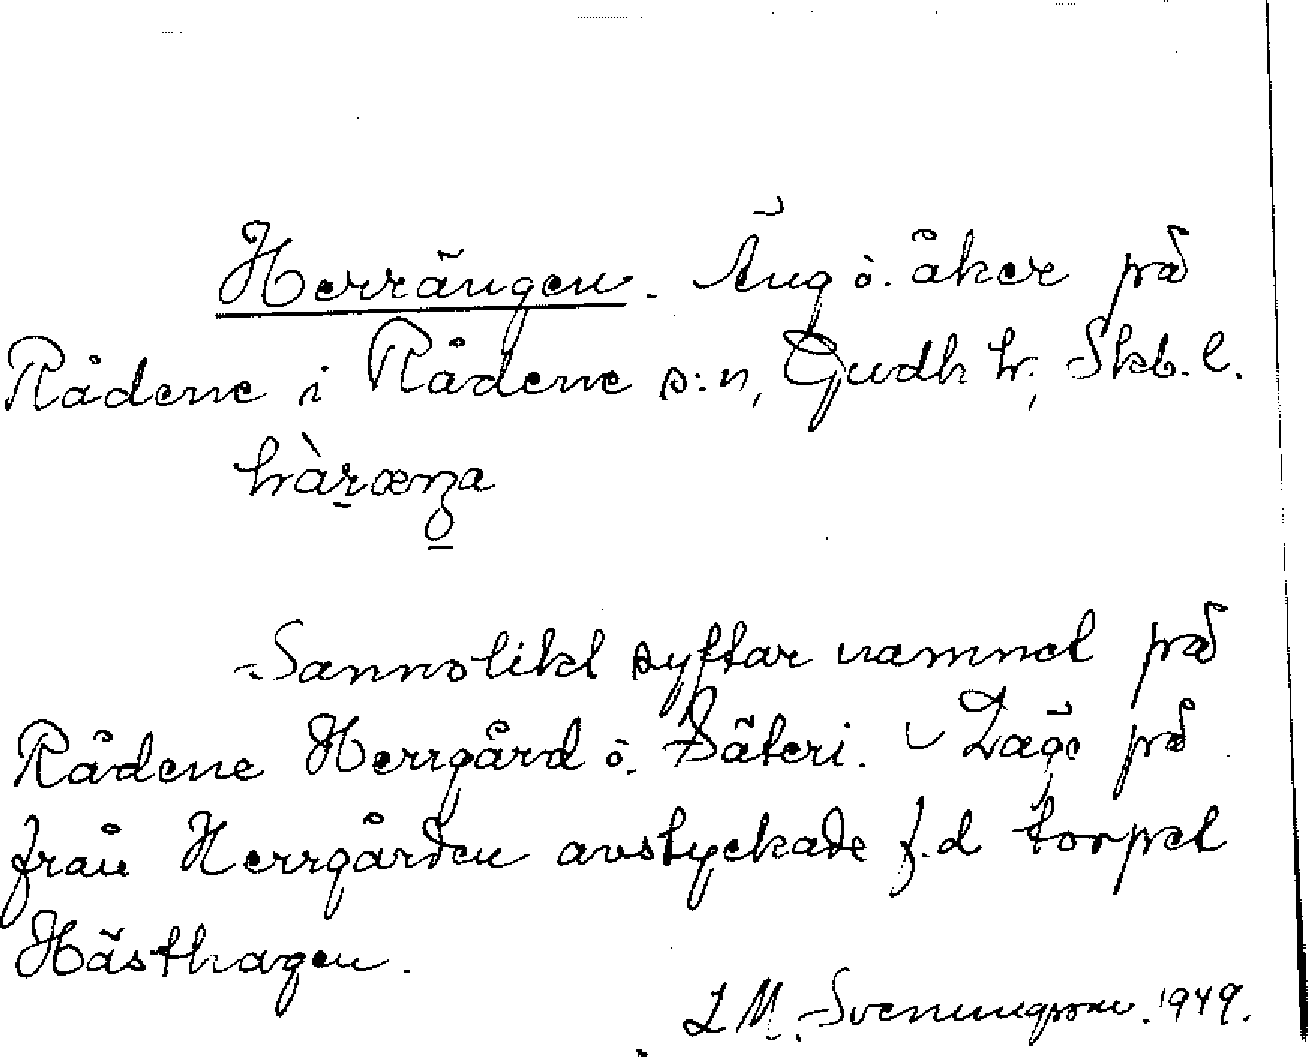 Herrängen. Äng o. åker på
Rådene i Rådene s:n, Gudh hr, Skb. l.
Sannolikt syftar namnet på
Rådene Herrgård o. Säteri. Läge på
från Herrgården avstyckade f.d torpet
Hästhagen.
L M. Svenungsson. 1949.